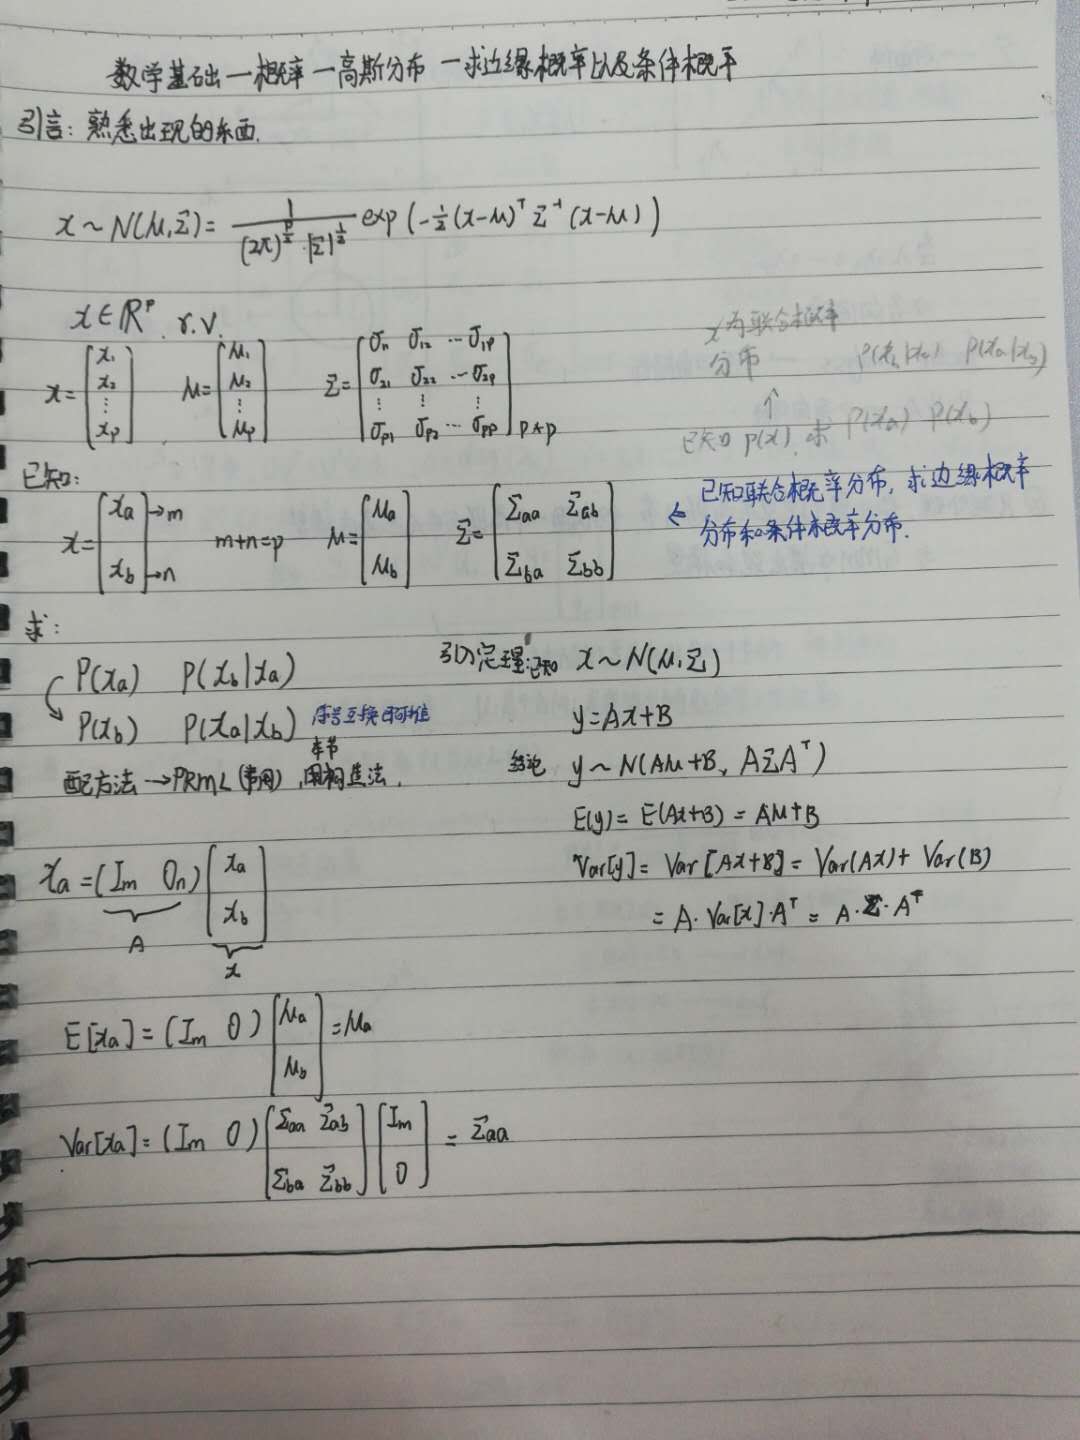 数学基础—概率—高斯分布—求边缘概率以及条件概率
引言：熟悉出现的东西.
x ~ N(μ,Σ) = 1/((2π)^(p/2)·|Σ|^(1/2)) exp(-1/2(x-μ)^T Σ^-1 (x-μ))
x∈R^p, r.v.
x=[x₁ x₂ ⋮ xp] μ=[μ₁ μ₂ ⋮ μp] Σ=[σ₁₁ σ₁₂ … σ₁p
σ₂₁ σ₂₂ … σ₂p
⋮ ⋮ ⋮
σp₁ σp₂ … σpp] p*p
x为联合概率
分布 P(xb|xa) P(xa|xb)
↑
已知 p(x), 求 P(xa) P(xb)
已知:
x=[xa→m xb→n] m+n=p μ=[μa μb] Σ=[Σaa Σab
Σba Σbb]
← 已知联合概率分布, 求边缘概率
分布和条件概率分布.
求:
P(xa) P(xb|xa)
P(xb) P(xa|xb) 序号互换即可推
配方法→PRML(常用) 本节用构造法.
引入定理: 已知 x~N(μ,Σ)
y=Ax+B
结论 y~N(Aμ+B, AΣA^T)
E(y)=E(Ax+B)=Aμ+B
Var[y]=Var[Ax+B]=Var(Ax)+Var(B)
=A·Var[x]·A^T=A·Σ·A^T
xa=(Im On)[xa xb]
A x
E[xa]=(Im O)[μa μb]=μa
Var[xa]=(Im O)[Σaa Σab
Σba Σbb][Im O]=Σaa